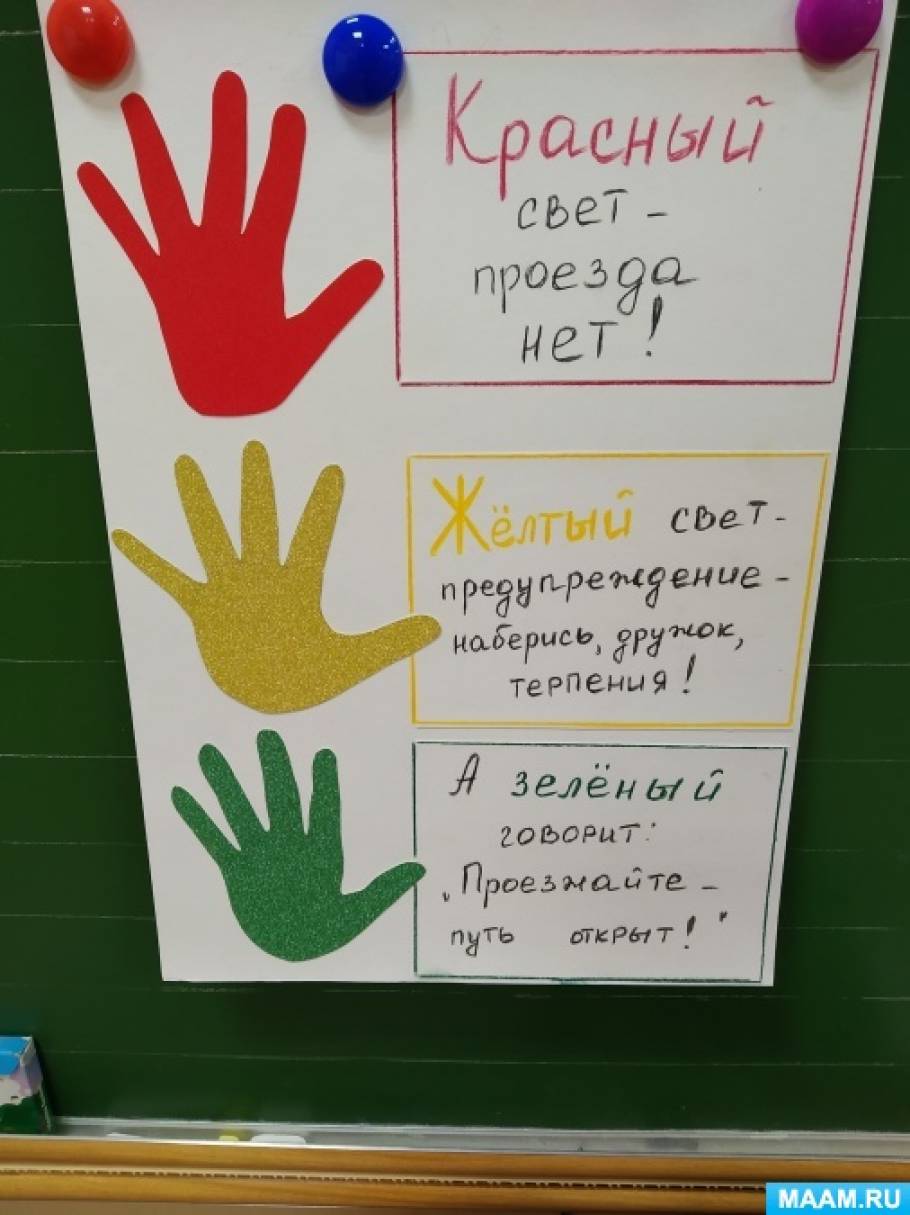 Красный
свет -
проезда
нет!
Жёлтый свет -
предупреждение -
наберись, дружок,
терпения!
А зелёный
говорит:
„Проезжайте -
путь открыт!"
MAAM.RU